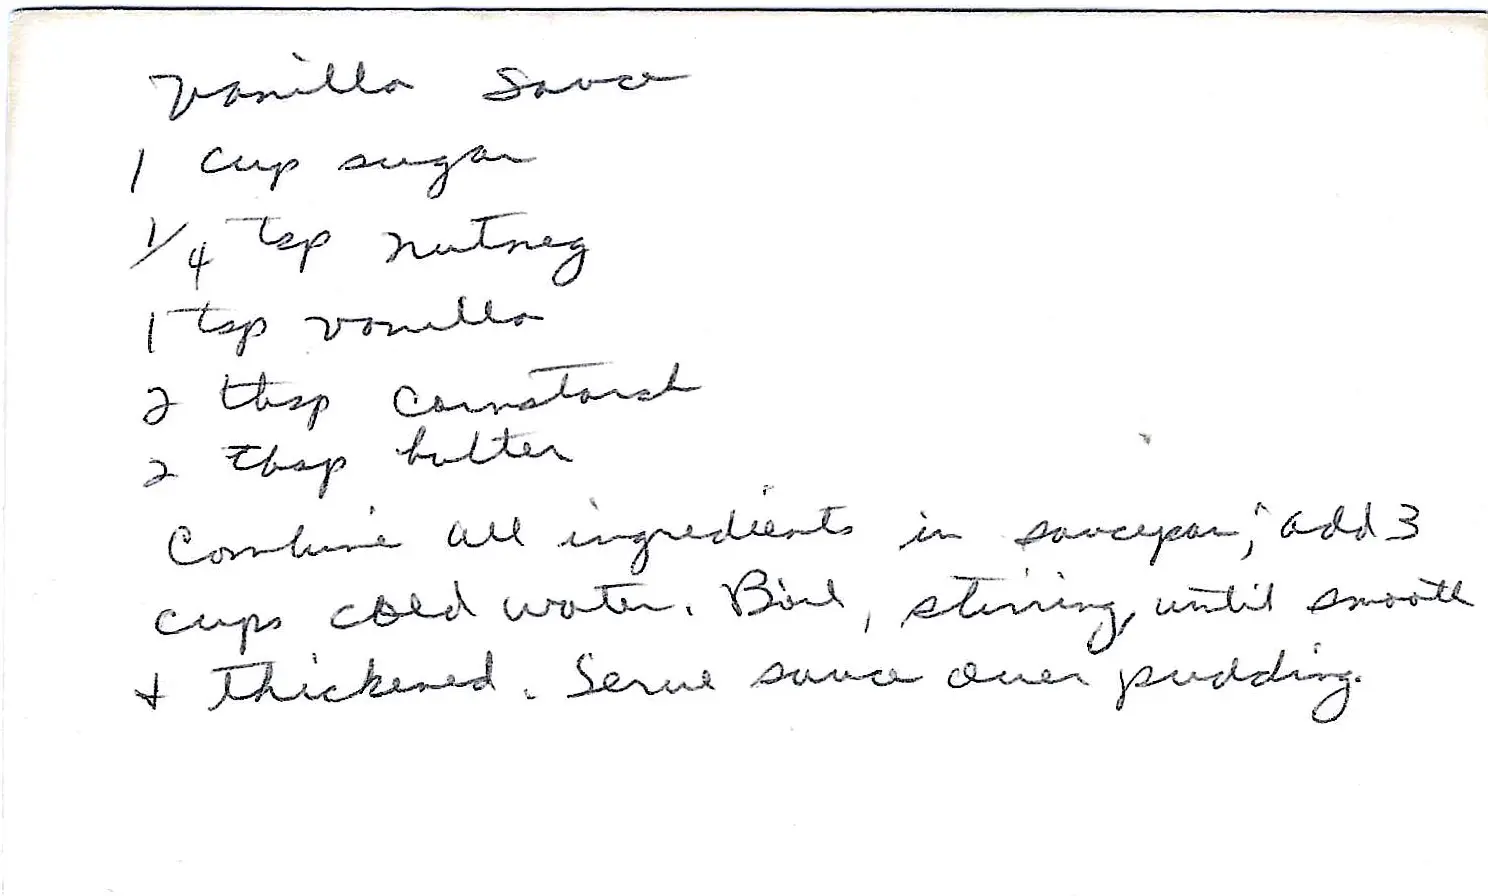 Vanilla Sauce
1 cup sugar
1/4 tsp nutmeg
1 tsp vanilla
2 tbsp cornstarch
2 tbsp butter
Combine all ingredients in saucepan; add 3
cups cold water. Boil, stirring, until smooth
+ thickened. Serve sauce over pudding.